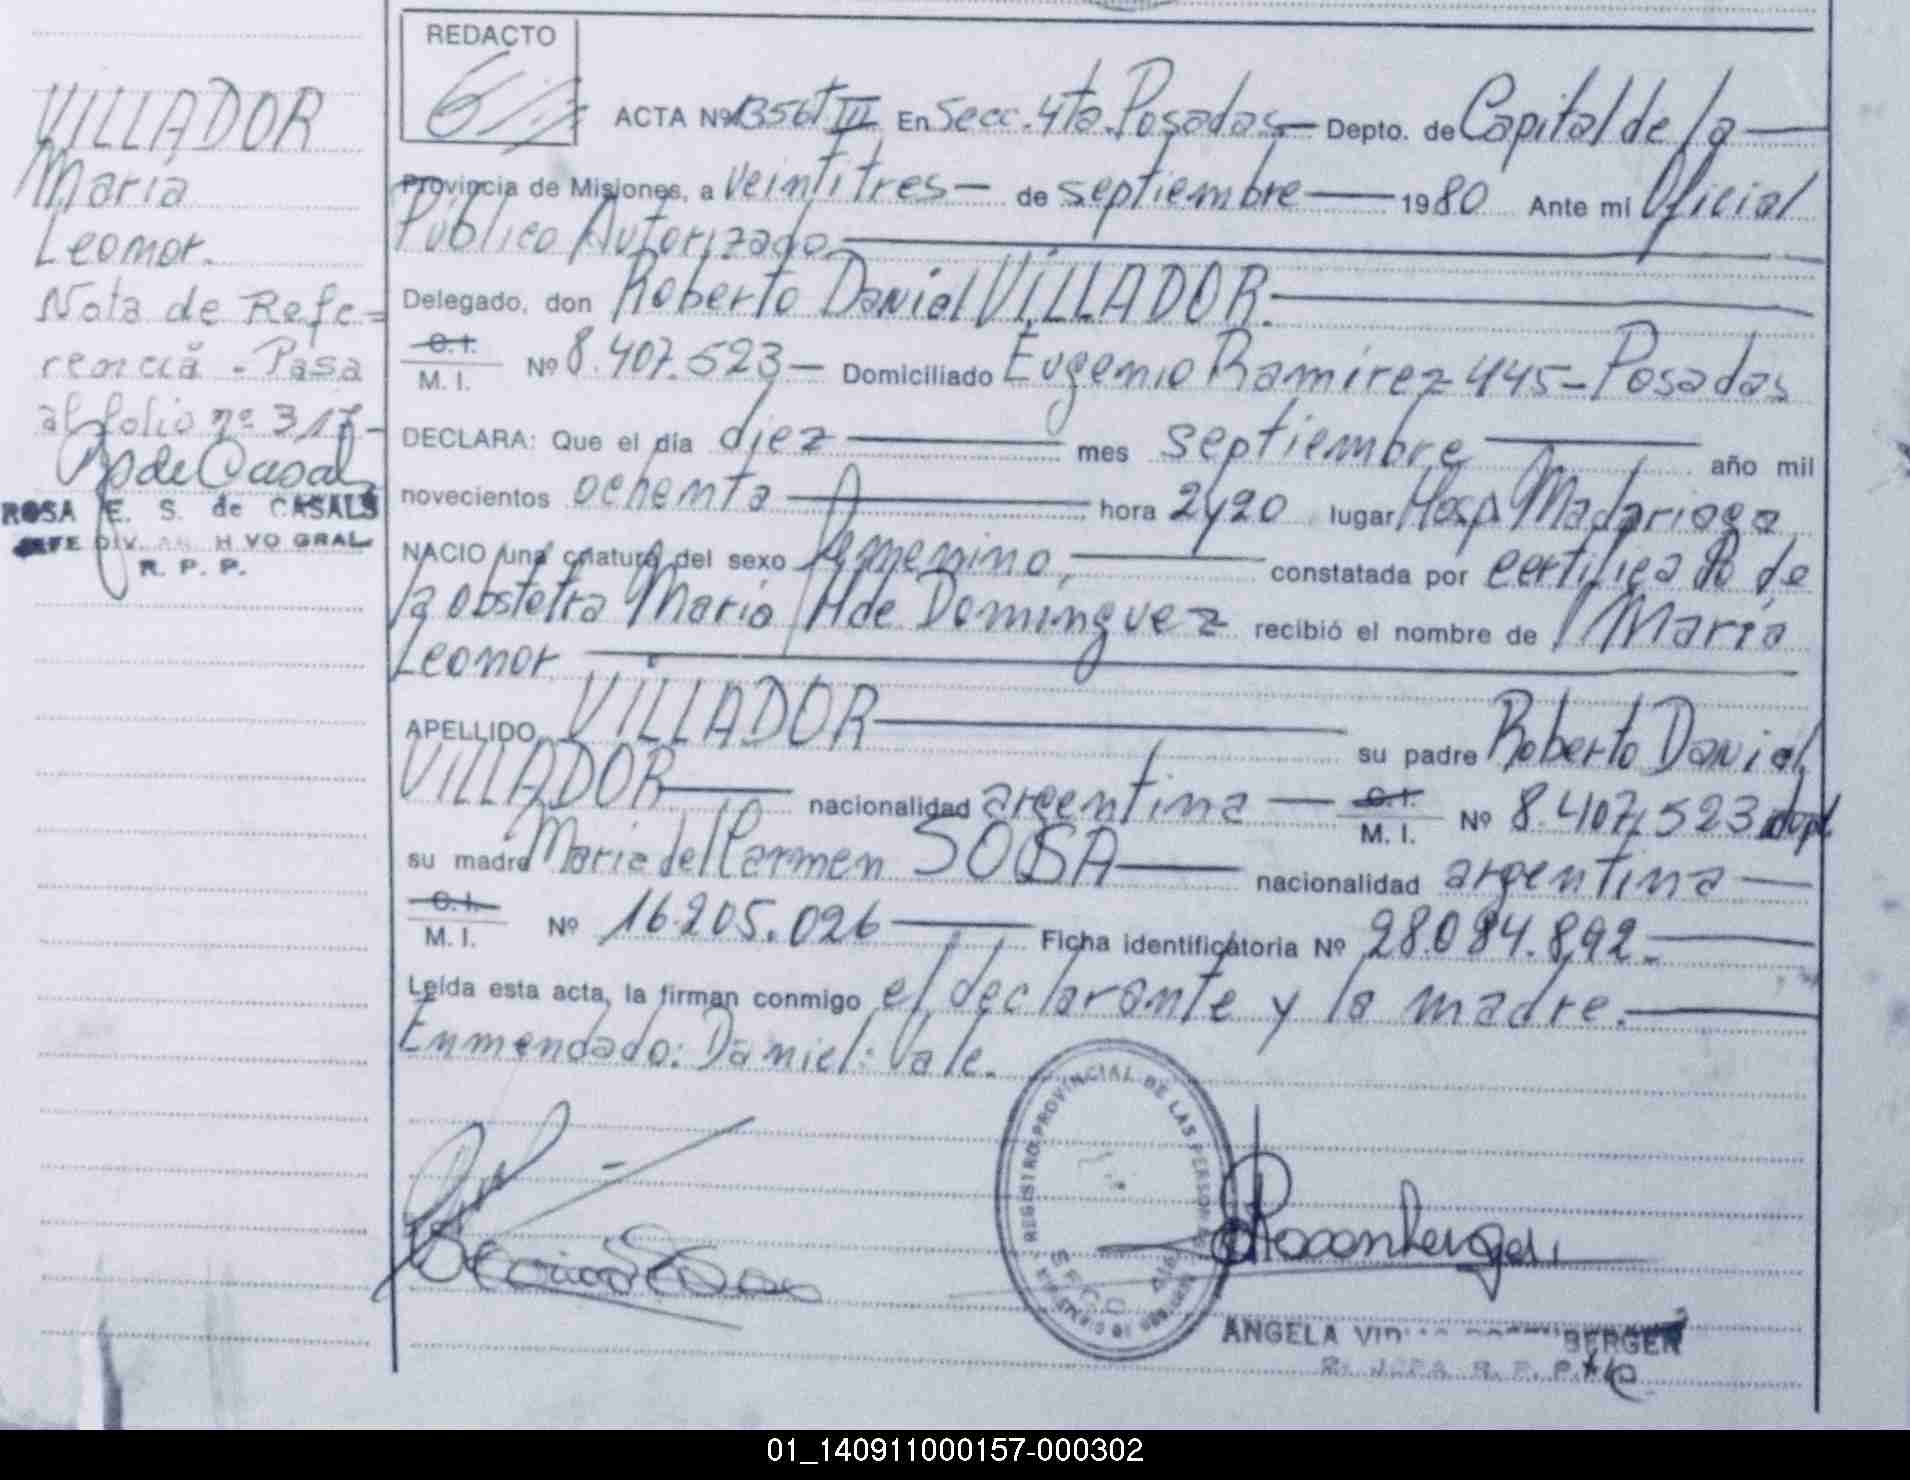 VILLADOR
Maria
Leonor.
Nota de Refe=
rencia - Pasa
al folio nº 317-
ROSA E. S. de CASALS
JEFE DIV. H VO GRAL
R. P. P.
REDACTO
ACTA Nº 1356 T III En Secc. 4ta. Posadas — Depto. de Capital de la —
Provincia de Misiones, a veintitres — de septiembre — 1980 Ante mi Oficial
Público Autorizado —
Delegado, don Roberto Daniel VILLADOR. —
C. I. / M. I. Nº 8.407.523 — Domiciliado Eugenio Ramirez 445 - Posadas
DECLARA: Que el día diez — mes septiembre — año mil
novecientos ochenta — hora 2y20 lugar Hosp Madariaga
NACIO una criatura del sexo femenino, — constatada por certificado de
la obstetra Maria H de Dominguez recibió el nombre de Maria
Leonor —
APELLIDO VILLADOR — su padre Roberto Daniel
VILLADOR — nacionalidad argentina — C. I. / M. I. Nº 8.407.523
su madre Maria del Carmen SOSA — nacionalidad argentina —
C. I. / M. I. Nº 16.205.026 — Ficha identificatoria Nº 28.084.892. —
Leída esta acta, la firman conmigo el declarante y la madre. —
Enmendado: Daniel: Vale.
REGISTRO PROVINCIAL DE LAS PERSONAS
SECC. 4ta
ANGELA BERGER
R. P. P.
01_140911000157-000302